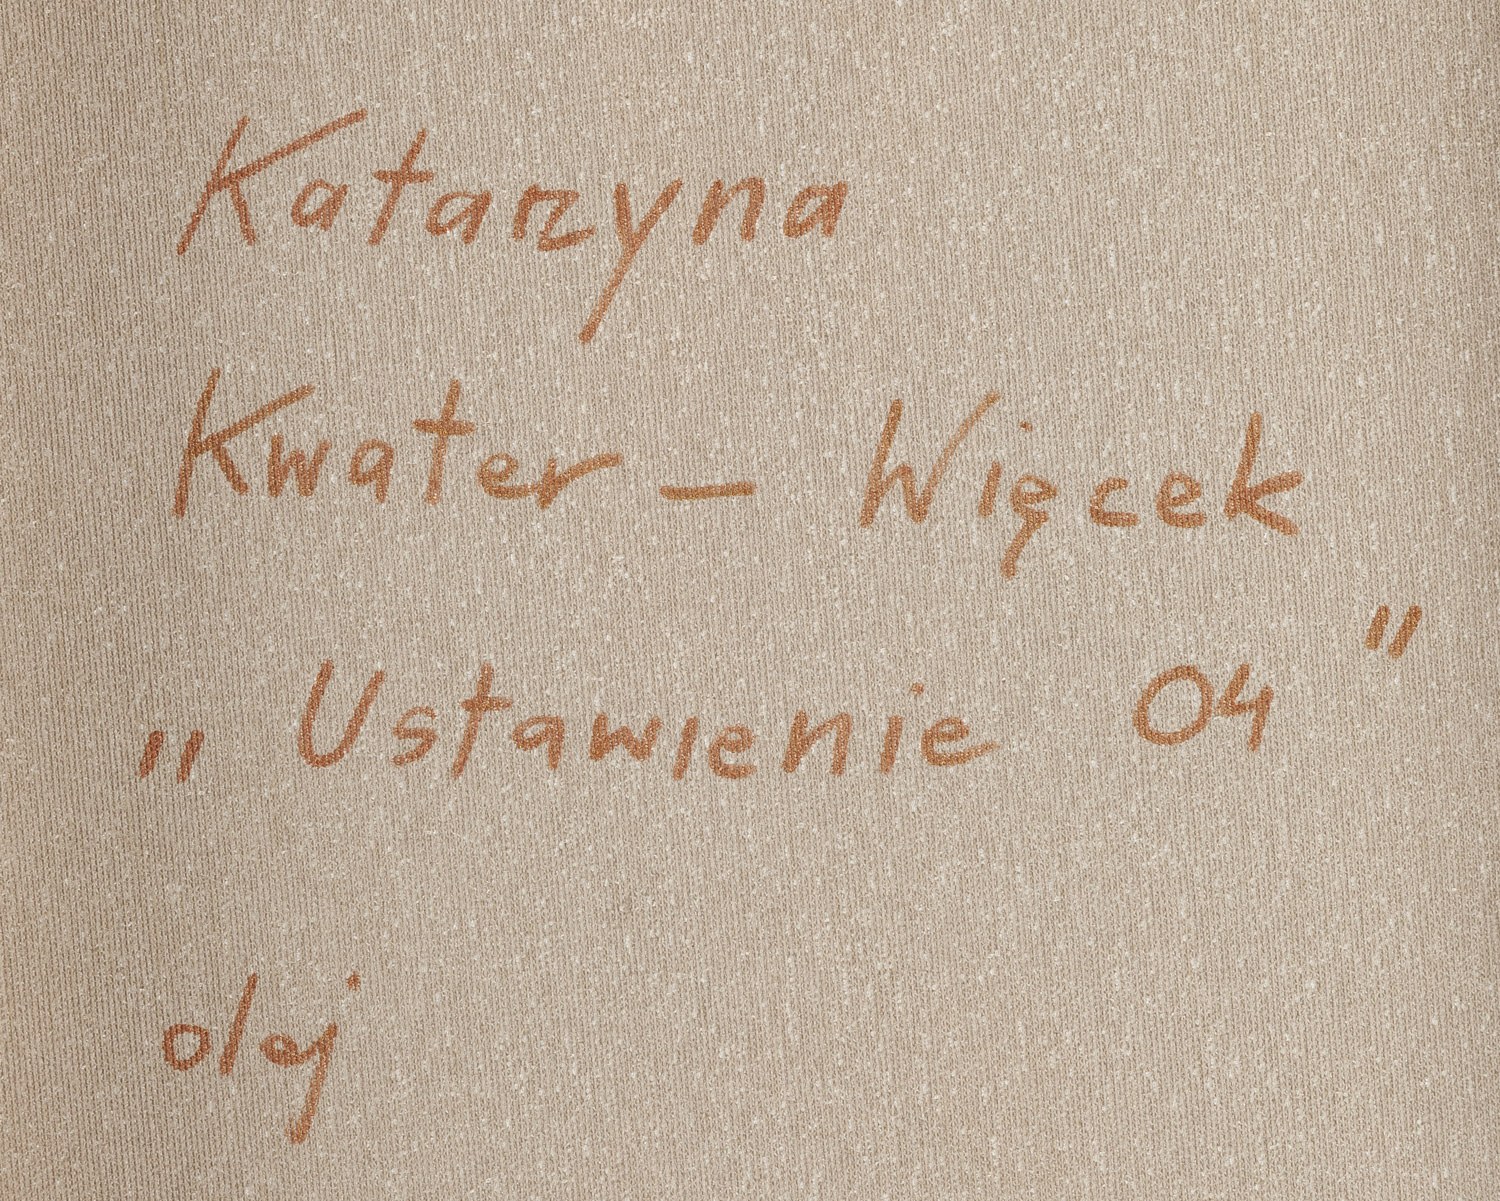 Katarzyna
Kwater - Więcek
" Ustawienie 04 "
olej